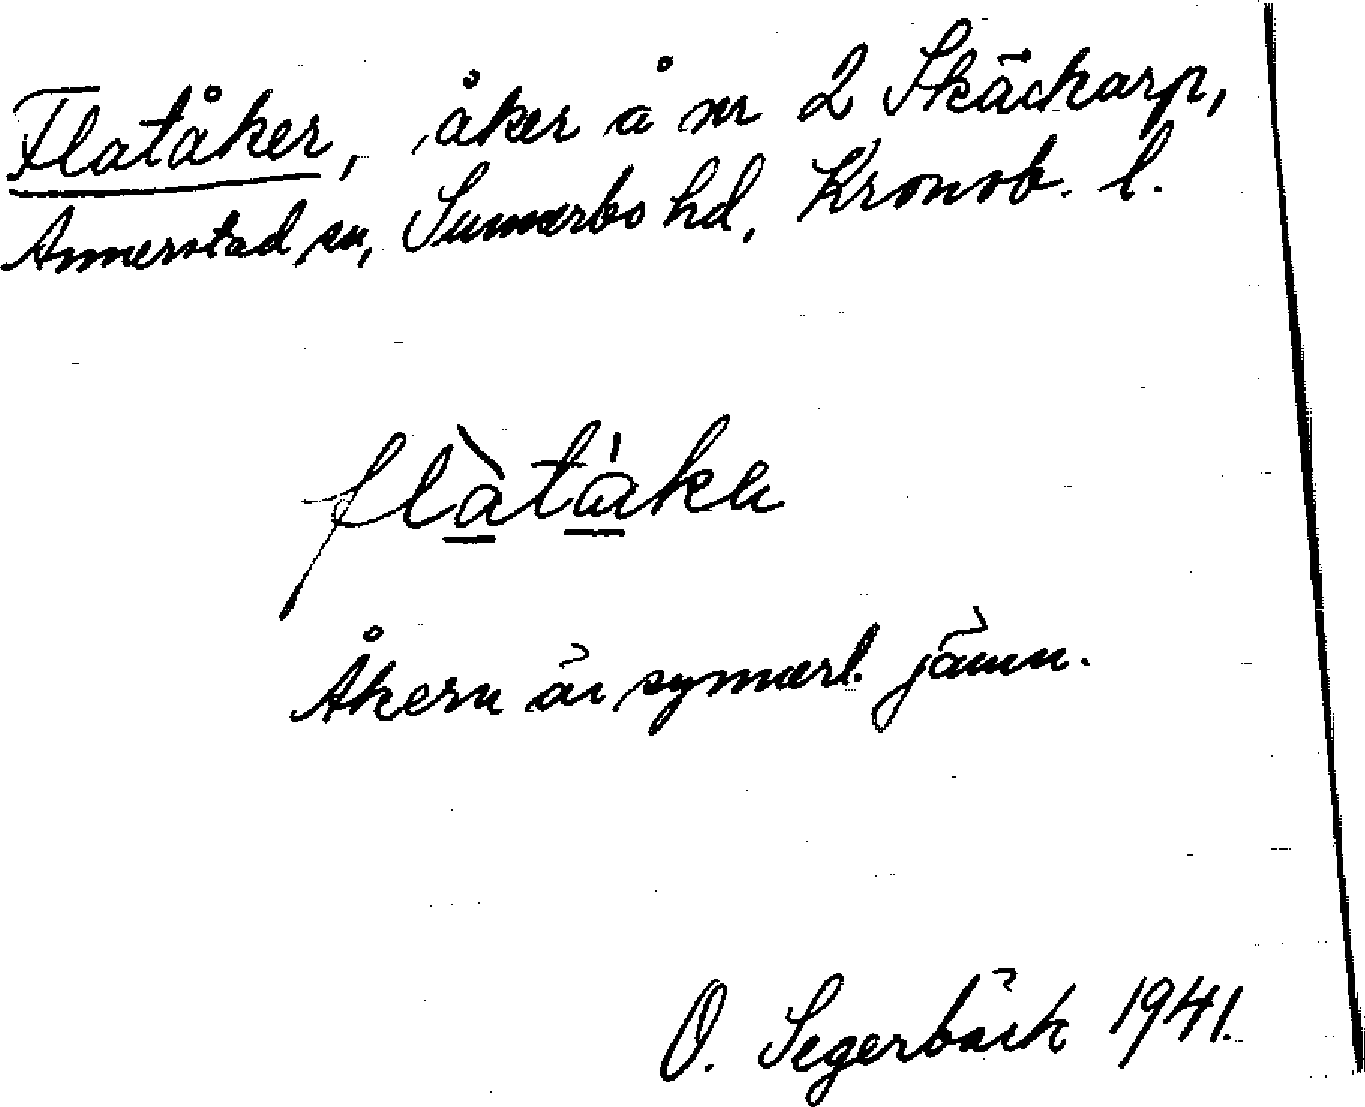 Flatåker, åker å nr 2 Skäckarp,
Annerstad sn, Sunnerbo hd, Kronob. l.
flàtáka
Åkern är synnerl. jämn.
O. Segerbäck 1941.